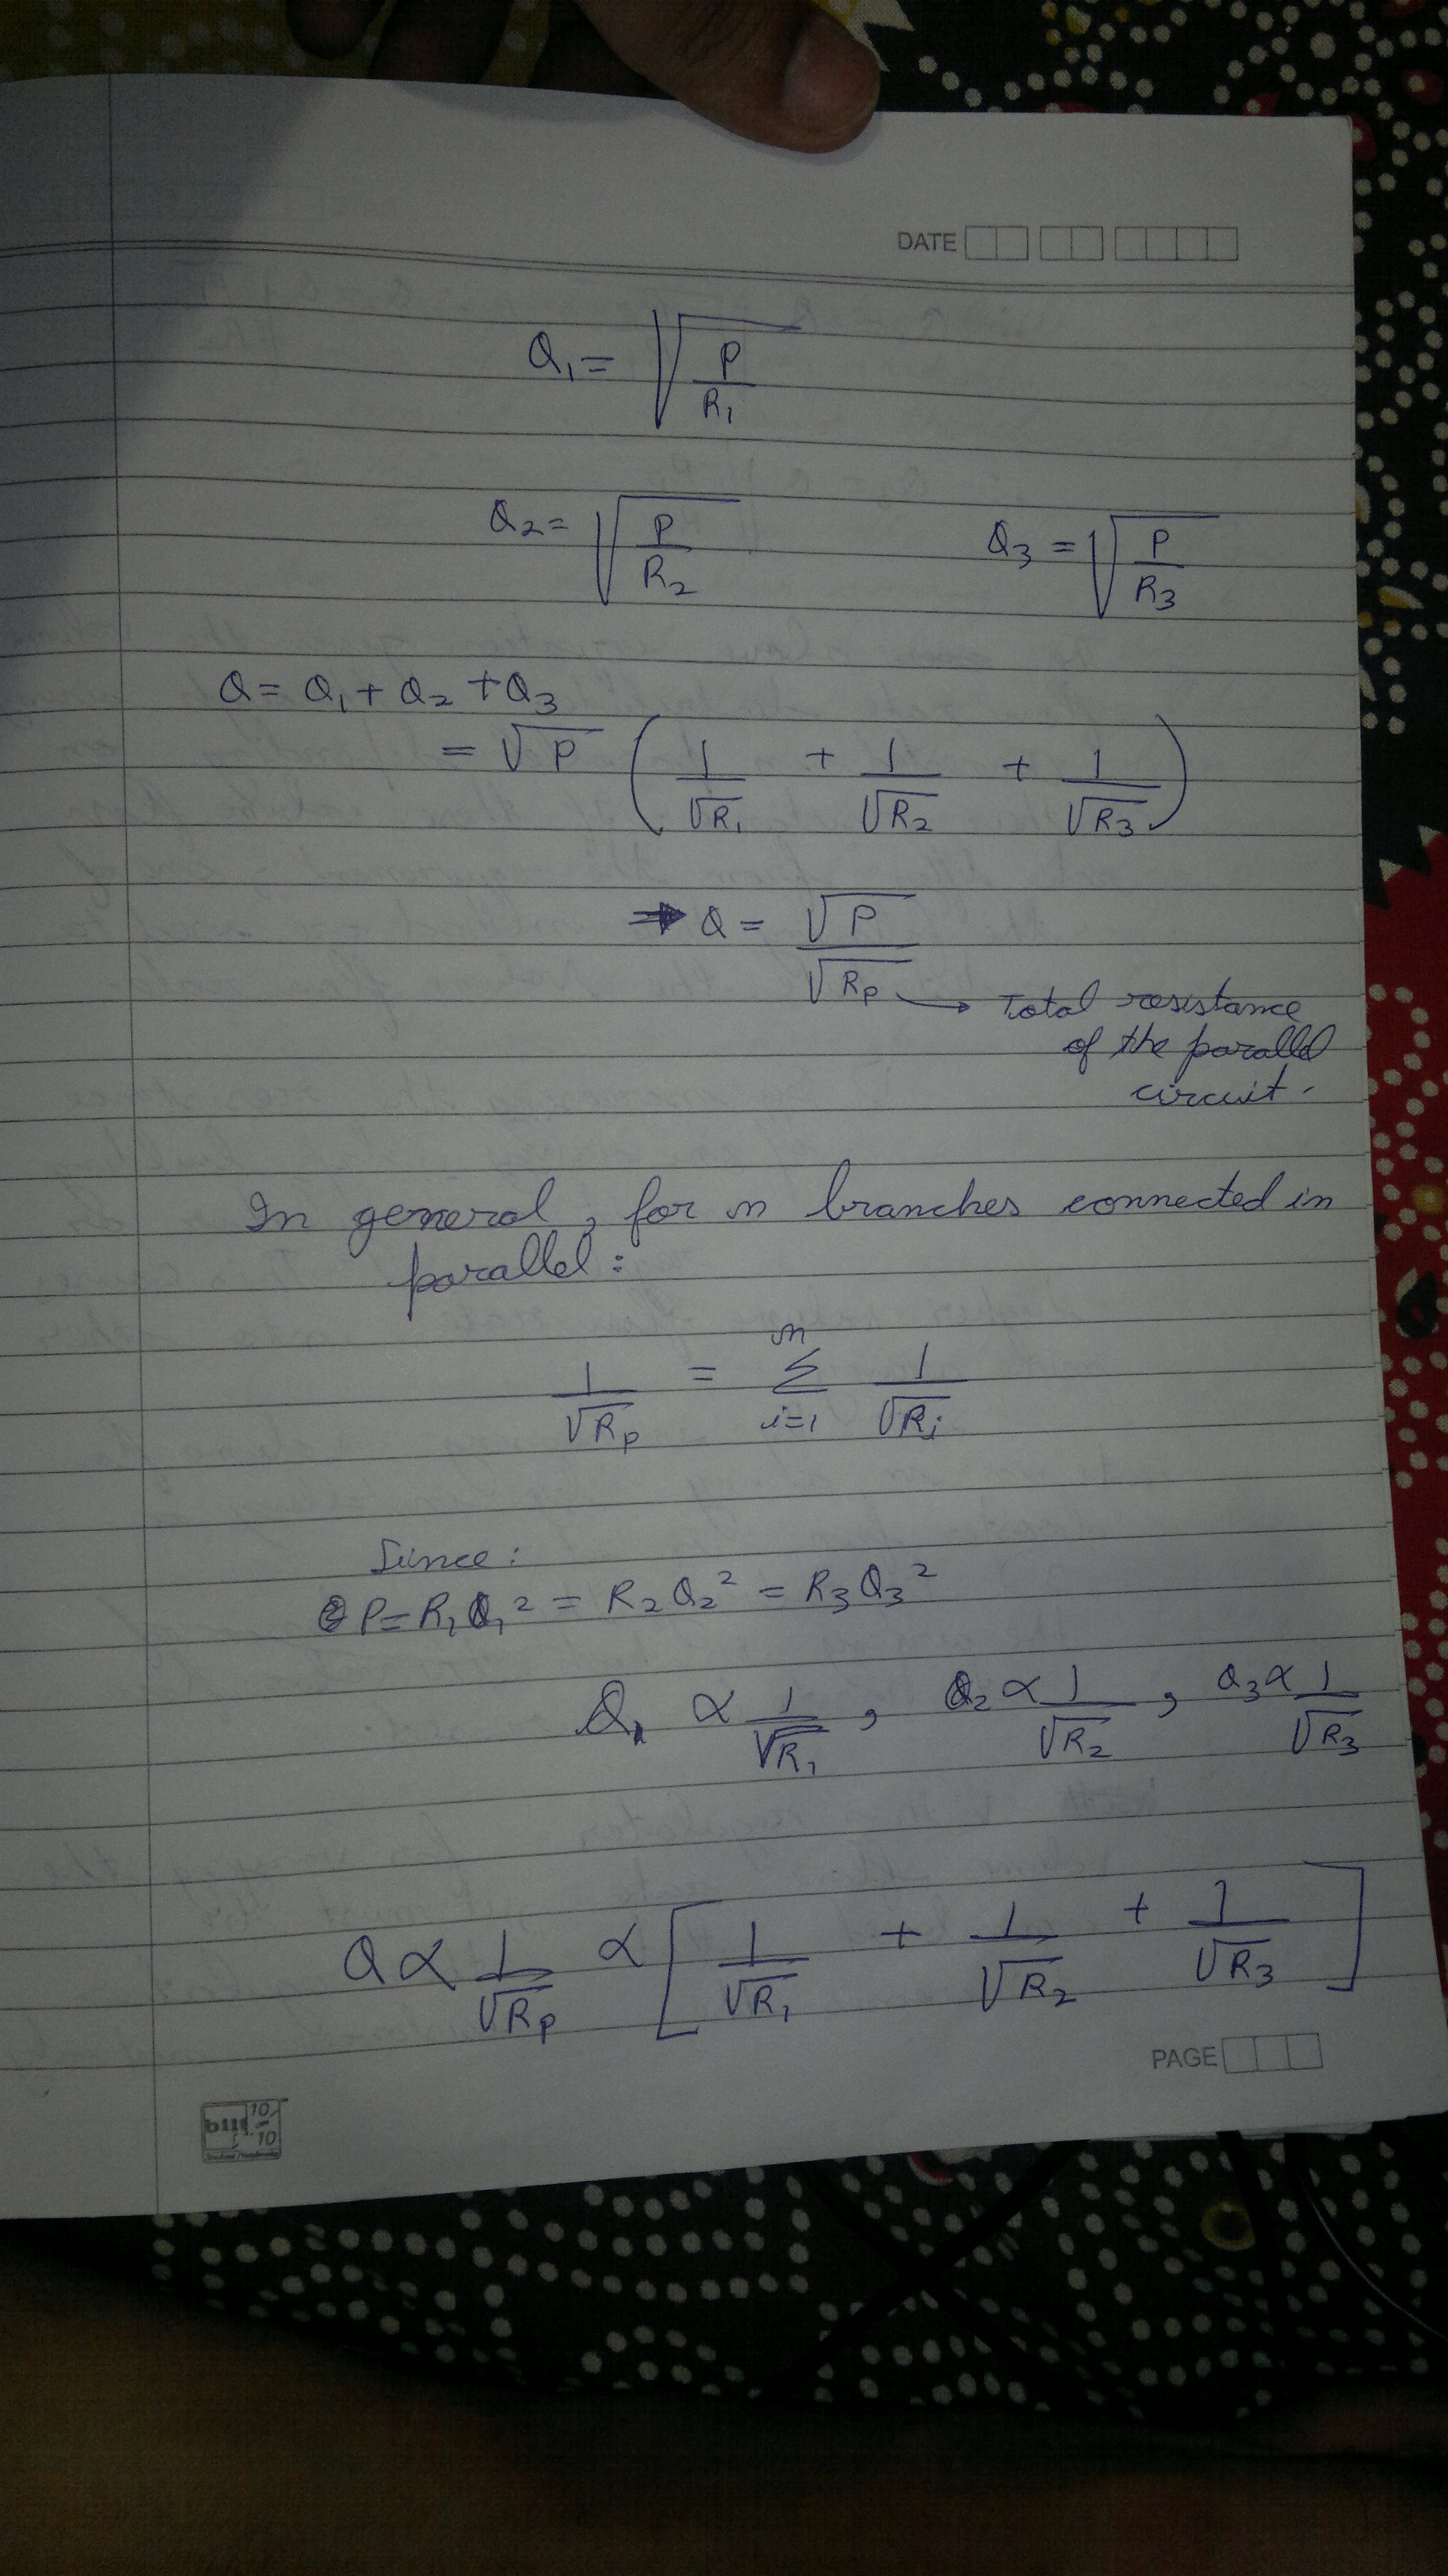 DATE
Q₁ = √(P/R₁)
Q₂ = √(P/R₂) Q₃ = √(P/R₃)
Q = Q₁ + Q₂ + Q₃
= √P (1/√R₁ + 1/√R₂ + 1/√R₃)
⇒ Q = √P/√Rp → Total resistance
of the parallel
circuit.
In general, for n branches connected in
parallel:
1/√Rp = Σ_{i=1}^{n} 1/√Ri
Since:
P = R₁Q₁² = R₂Q₂² = R₃Q₃²
Q₁ ∝ 1/√R₁, Q₂ ∝ 1/√R₂, Q₃ ∝ 1/√R₃
Q ∝ 1/√Rp ∝ [1/√R₁ + 1/√R₂ + 1/√R₃]
PAGE
bilt 10/10